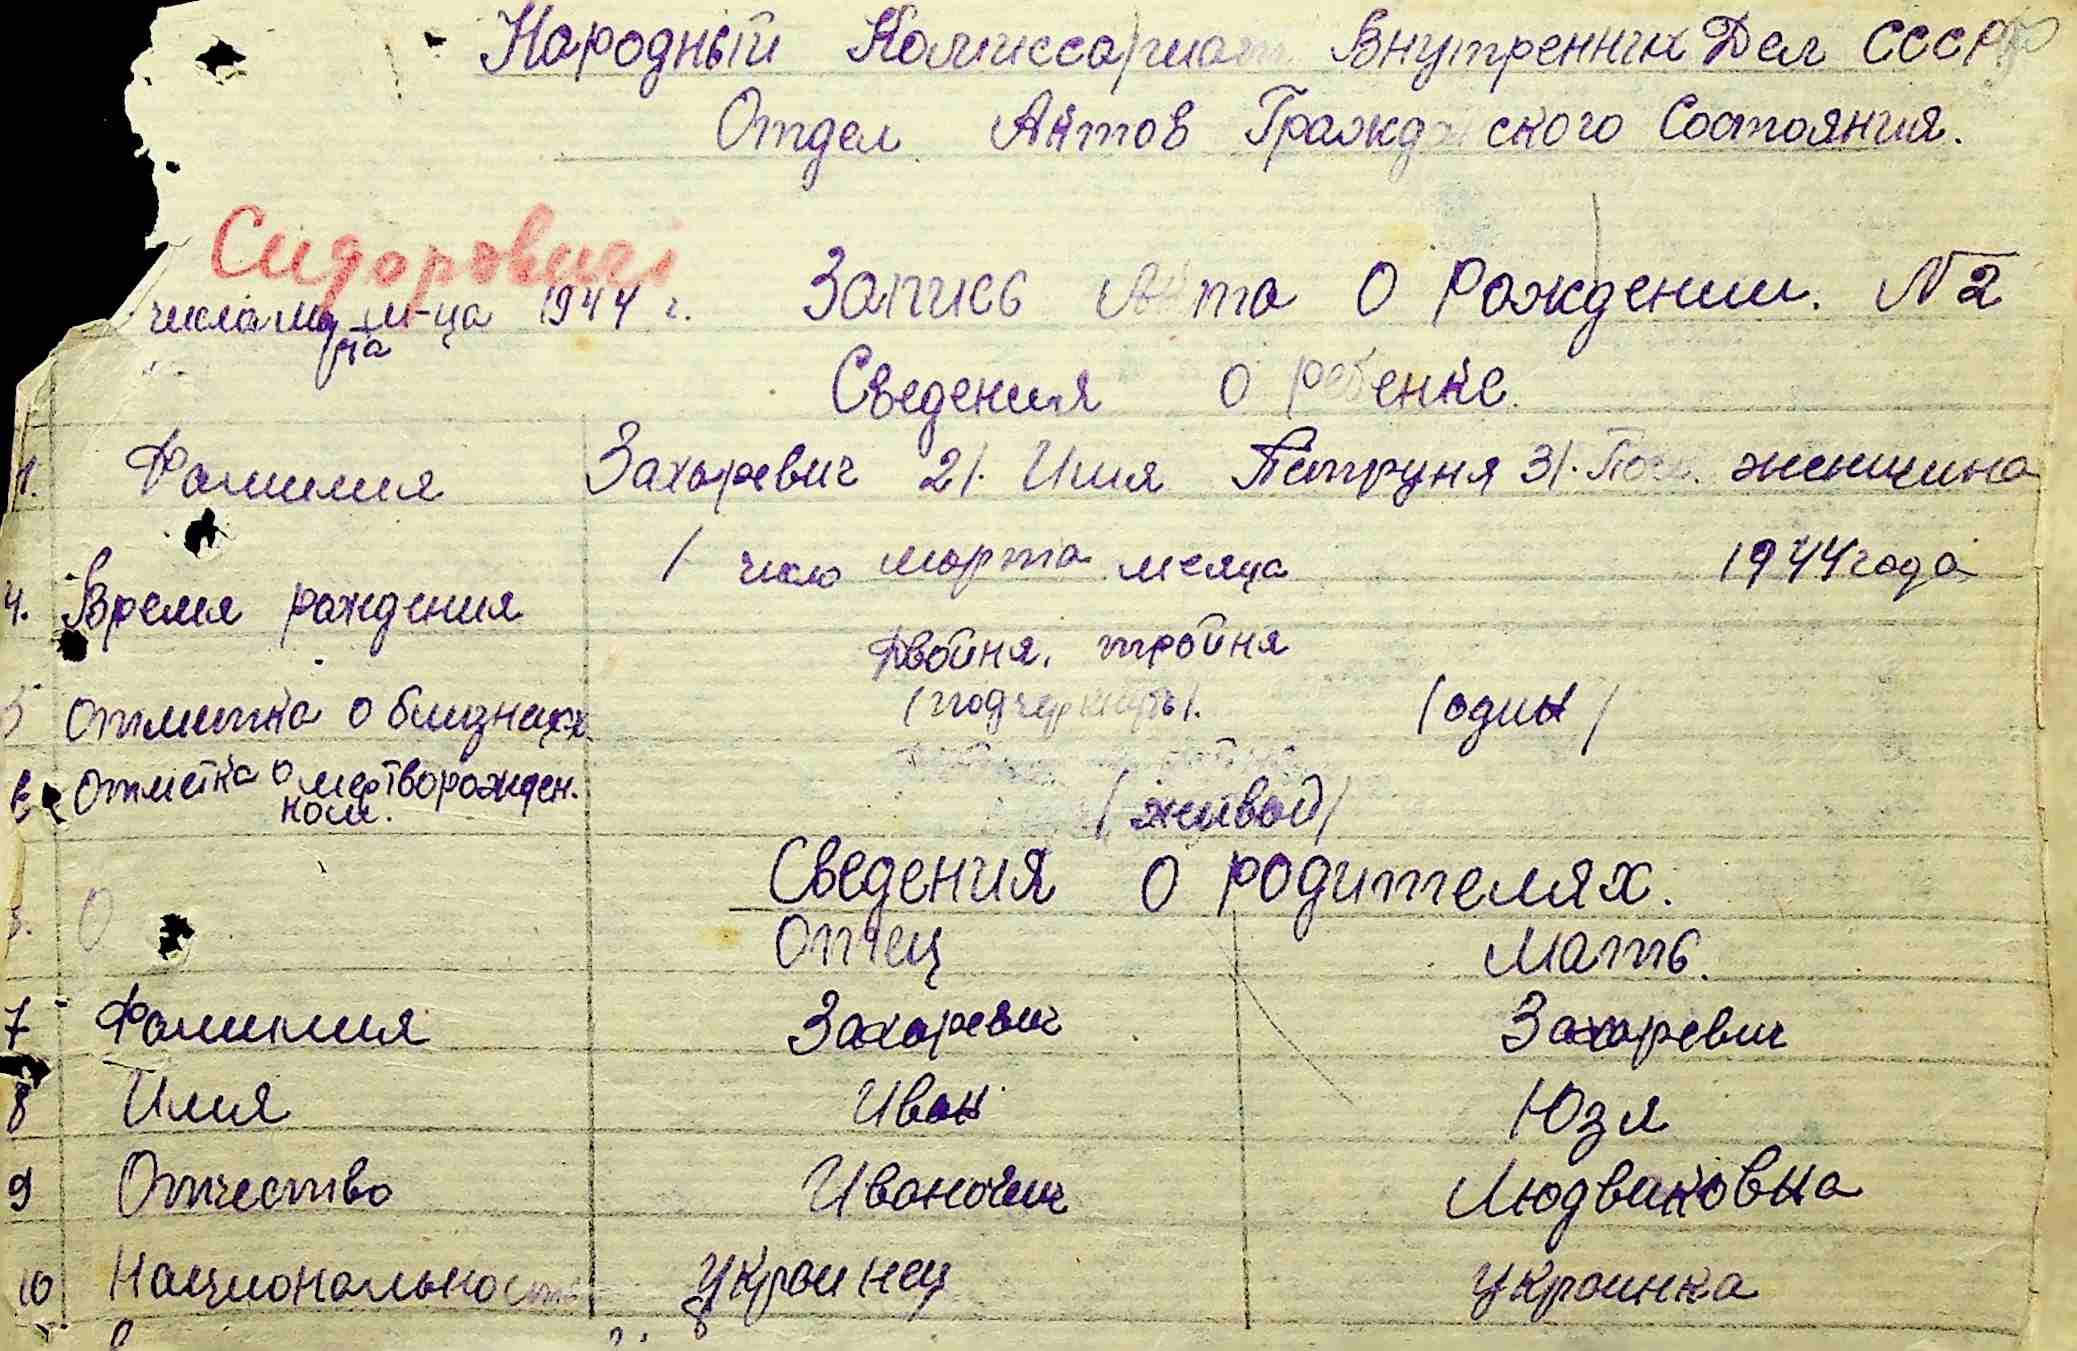 Народный Комиссариат Внутренних Дел СССР
Отдел Актов Гражданского Состояния.
Сидоровичі
числа марта м-ца 1944 г. Запись Акта о Рождении. № 2
Сведения о ребенке.
1. Фамилия Захаревич 2/. Имя Петруня 3/. Пол. женщина
4. Время рождения 1 число марта месяца 1944 года
Двойня, тройня
5 Отметка о близнецах (подчеркнуть). (один)
6 Отметка о мертворожден-
ном. (живой)
Сведения о родителях.
Отец Мать.
7 Фамилия Захаревич Захаревич
8 Имя Иван Юзя
9 Отчество Иванович Людвиковна
10 Национальность украинец украинка